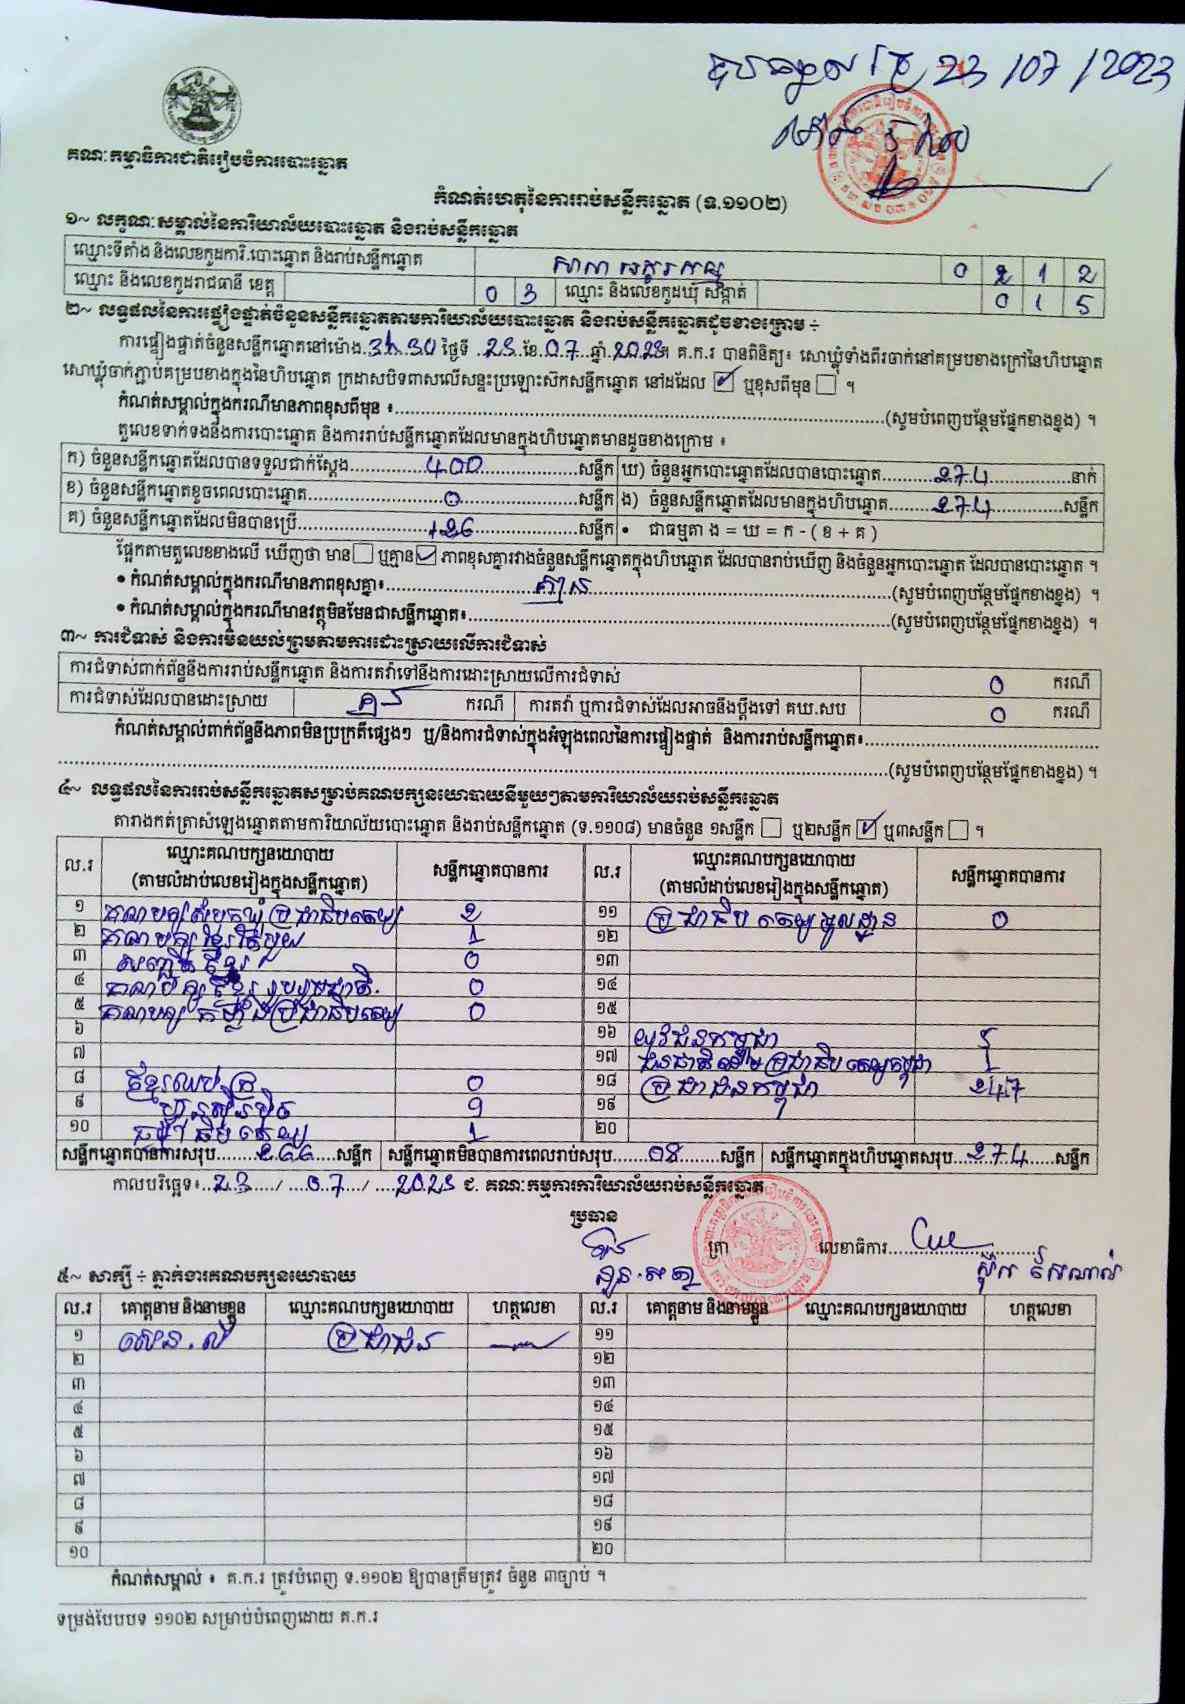 23/07/2023
គណៈកម្មាធិការជាតិរៀបចំការបោះឆ្នោត
កំណត់ហេតុនៃការរាប់សន្លឹកឆ្នោត (ទ.១១០២)
១~ លក្ខណៈសម្គាល់នៃការិយាល័យបោះឆ្នោត និងរាប់សន្លឹកឆ្នោត
ឈ្មោះទីតាំង និងលេខកូដការិ.បោះឆ្នោត និងរាប់សន្លឹកឆ្នោត 0 2 1 2
ឈ្មោះ និងលេខកូដរាជធានី ខេត្ត 0 3 ឈ្មោះ និងលេខកូដឃុំ សង្កាត់ 0 1 5
២~ លទ្ធផលនៃការផ្ទៀងផ្ទាត់ចំនួនសន្លឹកឆ្នោតតាមការិយាល័យបោះឆ្នោត និងរាប់សន្លឹកឆ្នោតដូចខាងក្រោម ÷
ការផ្ទៀងផ្ទាត់ចំនួនសន្លឹកឆ្នោតនៅម៉ោង 3h30 ថ្ងៃទី 23 ខែ 07 ឆ្នាំ 2023 គ.ក.រ បានពិនិត្យ៖ សោឃ្លុំទាំងពីរចាក់នៅគម្របខាងក្រៅនៃហិបឆ្នោត
សោឃ្លុំចាក់ភ្ជាប់គម្របខាងក្នុងនៃហិបឆ្នោត ក្រដាសបិទពាសលើសន្ទះប្រឡោះស៊កសន្លឹកឆ្នោត នៅដដែល ☑ ឬខុសពីមុន ☐ ។
កំណត់សម្គាល់ក្នុងករណីមានភាពខុសពីមុន ៖ (សូមបំពេញបន្ថែមផ្នែកខាងខ្នង) ។
តួលេខទាក់ទងនឹងការបោះឆ្នោត និងការរាប់សន្លឹកឆ្នោតដែលមានក្នុងហិបឆ្នោតមានដូចខាងក្រោម ៖
ក) ចំនួនសន្លឹកឆ្នោតដែលបានទទួលជាក់ស្តែង 400 សន្លឹក ឃ) ចំនួនអ្នកបោះឆ្នោតដែលបានបោះឆ្នោត 274 នាក់
ខ) ចំនួនសន្លឹកឆ្នោតខូចពេលបោះឆ្នោត 0 សន្លឹក ង) ចំនួនសន្លឹកឆ្នោតដែលមានក្នុងហិបឆ្នោត 274 សន្លឹក
គ) ចំនួនសន្លឹកឆ្នោតដែលមិនបានប្រើ 126 សន្លឹក • ជាធម្មតា ង = ឃ = ក - ( ខ + គ )
ផ្អែកតាមតួលេខខាងលើ ឃើញថា មាន ☐ ឬគ្មាន ☑ ភាពខុសគ្នារវាងចំនួនសន្លឹកឆ្នោតក្នុងហិបឆ្នោត ដែលបានរាប់ឃើញ និងចំនួនអ្នកបោះឆ្នោត ដែលបានបោះឆ្នោត ។
• កំណត់សម្គាល់ក្នុងករណីមានភាពខុសគ្នា៖ គ្មាន (សូមបំពេញបន្ថែមផ្នែកខាងខ្នង) ។
• កំណត់សម្គាល់ក្នុងករណីមានវត្ថុមិនមែនជាសន្លឹកឆ្នោត៖ (សូមបំពេញបន្ថែមផ្នែកខាងខ្នង) ។
៣~ ការជំទាស់ និងការមិនយល់ព្រមតាមការដោះស្រាយលើការជំទាស់
ការជំទាស់ពាក់ព័ន្ធនឹងការរាប់សន្លឹកឆ្នោត និងការតវ៉ាទៅនឹងការដោះស្រាយលើការជំទាស់ 0 ករណី
ការជំទាស់ដែលបានដោះស្រាយ ករណី ការតវ៉ា ឬការជំទាស់ដែលអាចនឹងប្តឹងទៅ គឃ.សប 0 ករណី
កំណត់សម្គាល់ពាក់ព័ន្ធនឹងភាពមិនប្រក្រតីផ្សេងៗ ឬ/និងការជំទាស់ក្នុងអំឡុងពេលនៃការផ្ទៀងផ្ទាត់ និងការរាប់សន្លឹកឆ្នោត៖
(សូមបំពេញបន្ថែមផ្នែកខាងខ្នង) ។
៤~ លទ្ធផលនៃការរាប់សន្លឹកឆ្នោតសម្រាប់គណបក្សនយោបាយនីមួយៗតាមការិយាល័យរាប់សន្លឹកឆ្នោត
តារាងកត់ត្រាសំឡេងឆ្នោតតាមការិយាល័យបោះឆ្នោត និងរាប់សន្លឹកឆ្នោត (ទ.១១០៨) មានចំនួន ១សន្លឹក ☐ ឬ២សន្លឹក ☑ ឬ៣សន្លឹក ☐ ។
ល.រ ឈ្មោះគណបក្សនយោបាយ (តាមលំដាប់លេខរៀងក្នុងសន្លឹកឆ្នោត) សន្លឹកឆ្នោតបានការ ល.រ ឈ្មោះគណបក្សនយោបាយ (តាមលំដាប់លេខរៀងក្នុងសន្លឹកឆ្នោត) សន្លឹកឆ្នោតបានការ
១ គណបក្សសំបុកឃ្មុំប្រជាធិបតេយ្យ 2 ១១ ប្រជាធិបតេយ្យមូលដ្ឋាន 0
២ គណបក្សខ្មែរតែមួយ 1 ១២
៣ 0 ១៣
៤ គណបក្សខ្មែររួបរួមជាតិ 0 ១៤
៥ គណបក្សកម្លាំងប្រជាធិបតេយ្យ 0 ១៥
៦ ១៦ យុវជនកម្ពុជា
៧ ១៧ ជនជាតិដើមប្រជាធិបតេយ្យកម្ពុជា 1
៨ ខ្មែរឈប់ក្រ 0 ១៨ ប្រជាជនកម្ពុជា 247
៩ ហ្វ៊ុនស៊ិនប៉ិច 9 ១៩
១០ ធម្មាធិបតេយ្យ 1 ២០
សន្លឹកឆ្នោតបានការសរុប 266 សន្លឹក សន្លឹកឆ្នោតមិនបានការពេលរាប់សរុប 08 សន្លឹក សន្លឹកឆ្នោតក្នុងហិបឆ្នោតសរុប 274 សន្លឹក
កាលបរិច្ឆេទ៖ 23 / 07 / 2023 ជ. គណៈកម្មការការិយាល័យរាប់សន្លឹកឆ្នោត
ប្រធាន
ត្រា លេខាធិការ
៥~ សាក្សី ÷ ភ្នាក់ងារគណបក្សនយោបាយ
ល.រ គោត្តនាម និងនាមខ្លួន ឈ្មោះគណបក្សនយោបាយ ហត្ថលេខា ល.រ គោត្តនាម និងនាមខ្លួន ឈ្មោះគណបក្សនយោបាយ ហត្ថលេខា
១ ប្រជាជន ១១
២ ១២
៣ ១៣
៤ ១៤
៥ ១៥
៦ ១៦
៧ ១៧
៨ ១៨
៩ ១៩
១០ ២០
កំណត់សម្គាល់ ៖ គ.ក.រ ត្រូវបំពេញ ទ.១១០២ ឱ្យបានត្រឹមត្រូវ ចំនួន ៣ច្បាប់ ។
ទម្រង់បែបបទ ១១០២ សម្រាប់បំពេញដោយ គ.ក.រ